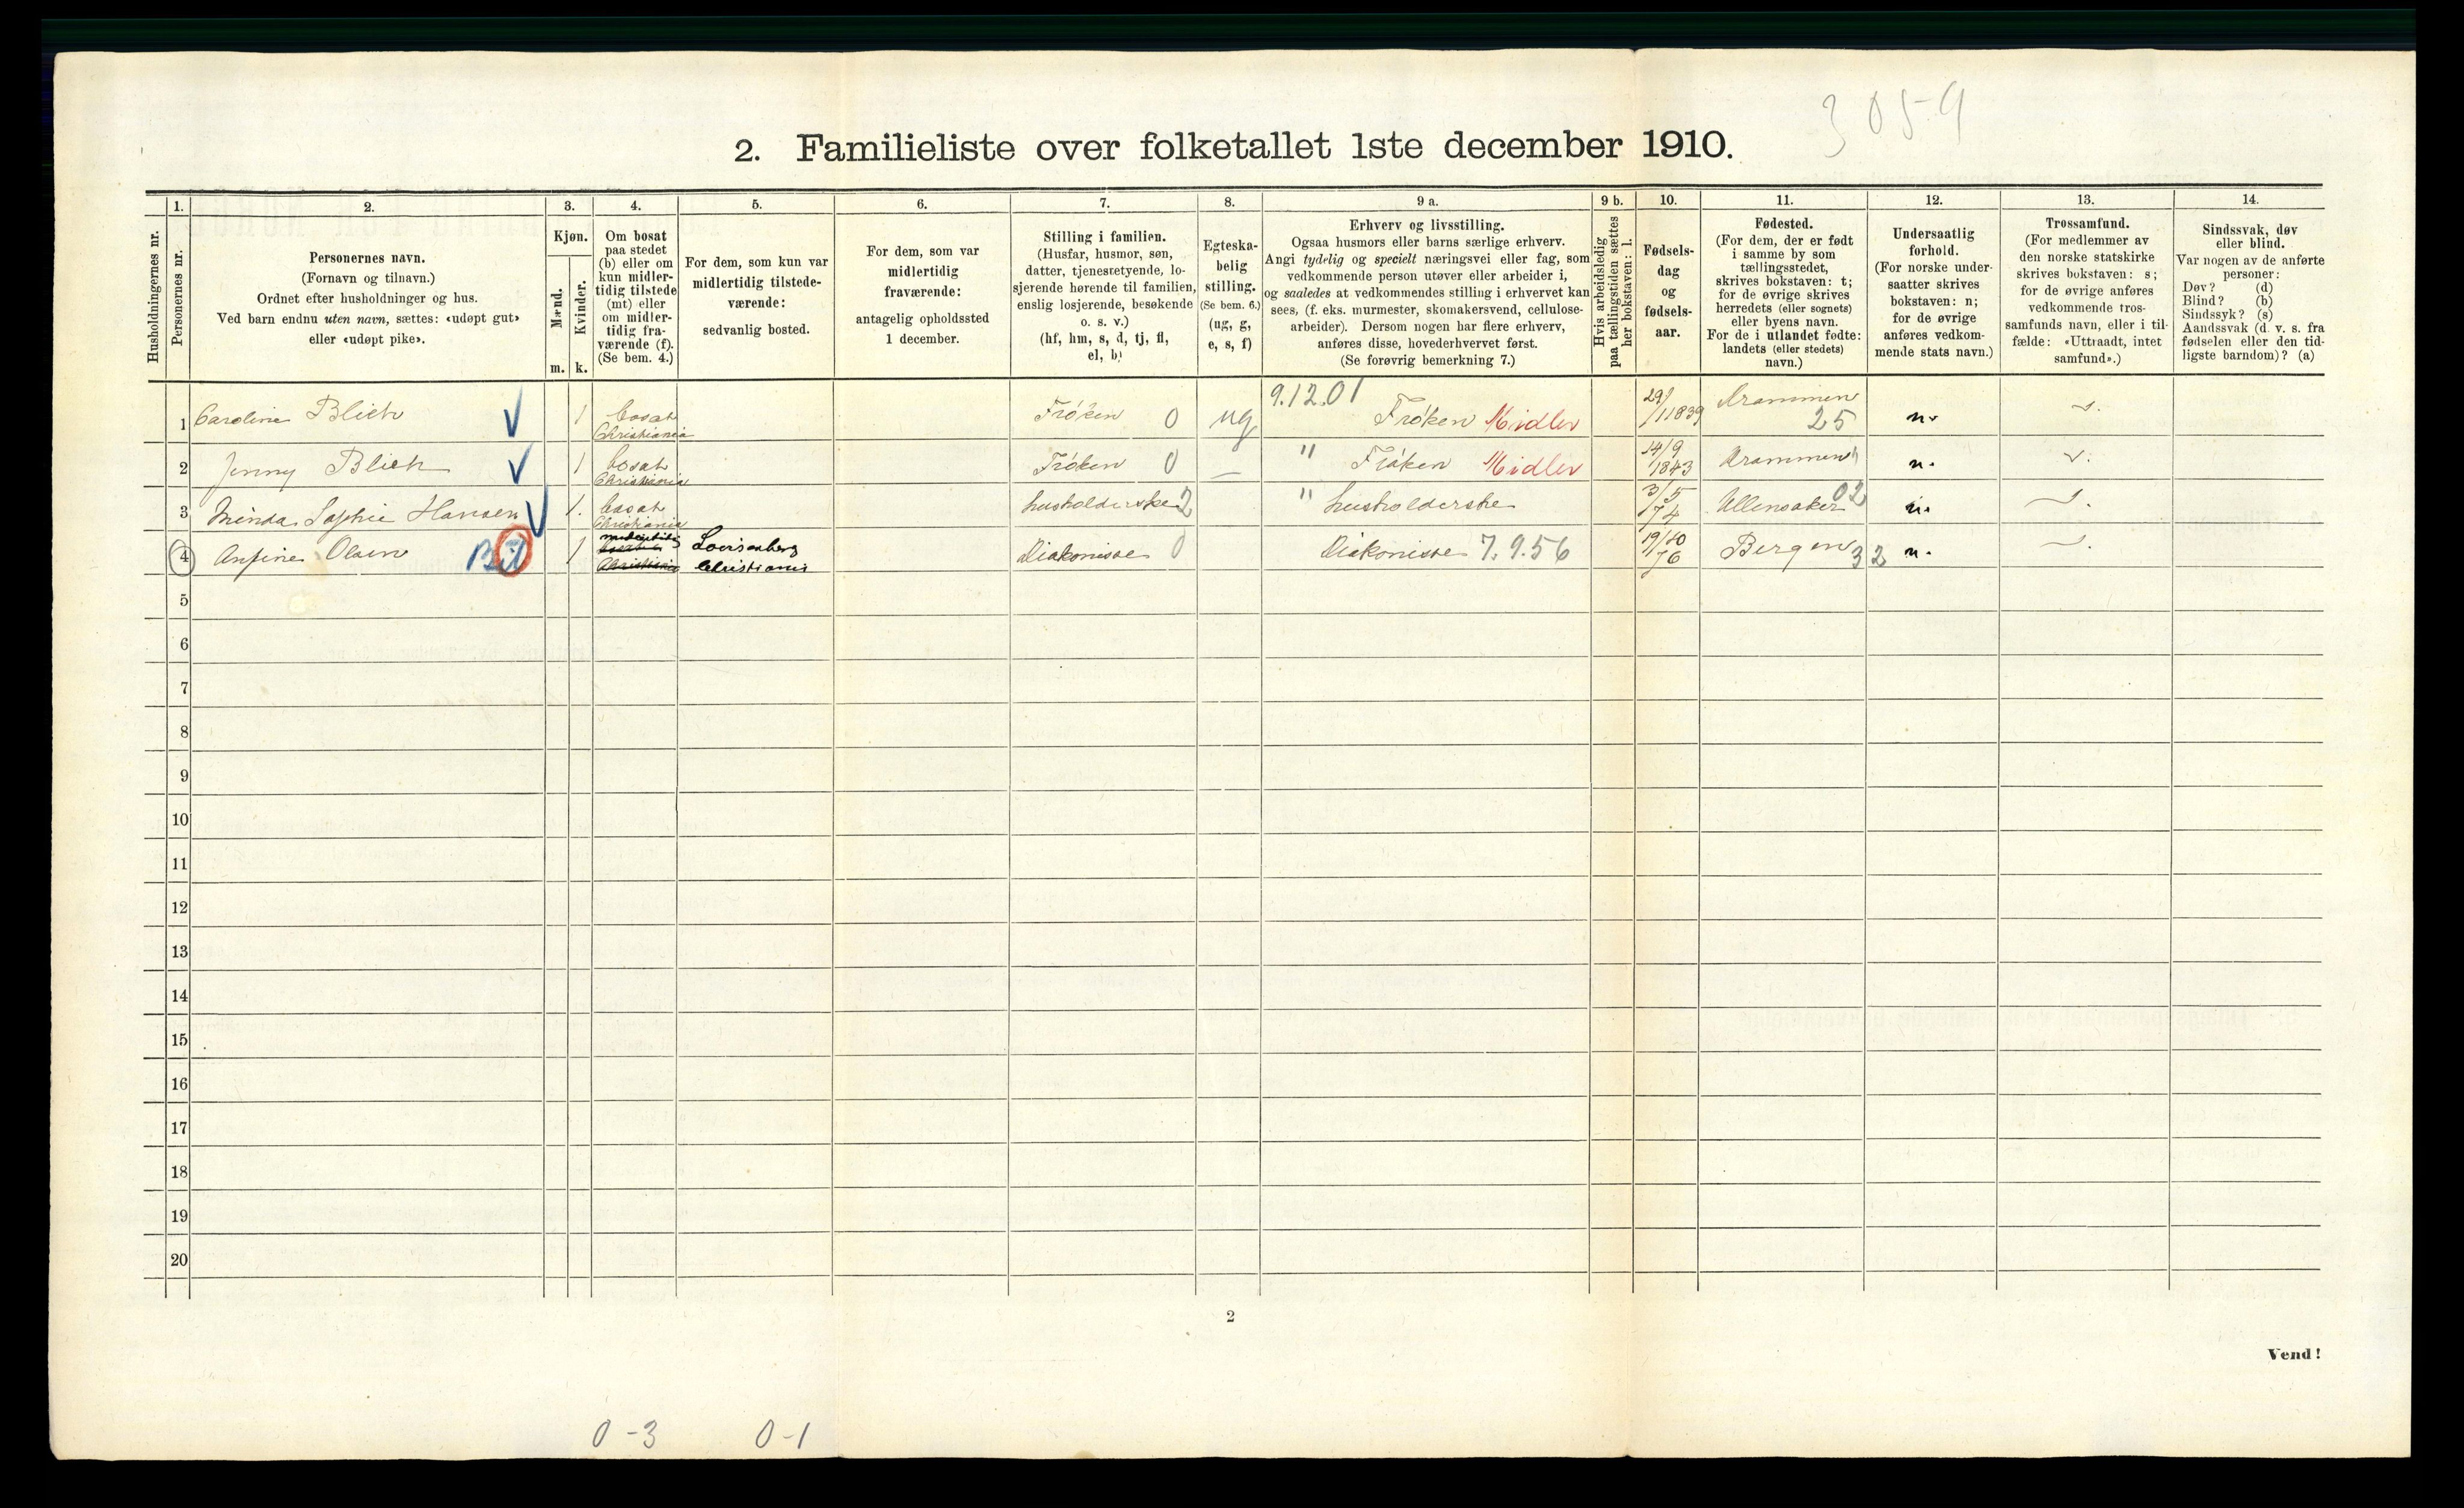 3059
2. Familieliste over folketallet 1ste december 1910.
Husholdningernes nr.
1.
Personernes nr.
2.
Personernes navn.
(Fornavn og tilnavn.)
Ordnet efter husholdninger og hus.
Ved barn endnu uten navn, sættes: «udøpt gut»
eller «udøpt pike».
3.
Kjøn.
Mænd.
Kvinder.
m. k.
4.
Om bosat
paa stedet
(b) eller om
kun midler-
tidig tilstede
(mt) eller
om midler-
tidig fra-
værende (f).
(Se bem. 4.)
5.
For dem, som kun var
midlertidig tilstede-
værende:
sedvanlig bosted.
6.
For dem, som var
midlertidig
fraværende:
antagelig opholdssted
1 december.
7.
Stilling i familien.
(Husfar, husmor, søn,
datter, tjenestetyende, lo-
sjerende hørende til familien,
enslig losjerende, besøkende
o. s. v.)
(hf, hm, s, d, tj, fl,
el, b)
8.
Egteska-
belig
stilling.
(Se bem. 6.)
(ug, g,
e, s, f)
9 a.
Erhverv og livsstilling.
Ogsaa husmors eller barns særlige erhverv.
Angi tydelig og specielt næringsvei eller fag, som
vedkommende person utøver eller arbeider i,
og saaledes at vedkommendes stilling i erhvervet kan
sees, (f. eks. murmester, skomakersvend, cellulose-
arbeider). Dersom nogen har flere erhverv,
anføres disse, hovederhvervet først.
(Se forøvrig bemerkning 7.)
9 b.
Hvis arbeidsledig
paa tællingstiden sættes
her bokstaven: l.
10.
Fødsels-
dag
og
fødsels-
aar.
11.
Fødested.
(For dem, der er født
i samme by som
tællingsstedet,
skrives bokstaven: t;
for de øvrige skrives
herredets (eller sognets)
eller byens navn.
For de i utlandet fødte:
landets (eller stedets)
navn.)
12.
Undersaatlig
forhold.
(For norske under-
saatter skrives
bokstaven: n;
for de øvrige
anføres vedkom-
mende stats navn.)
13.
Trossamfund.
(For medlemmer av
den norske statskirke
skrives bokstaven: s;
for de øvrige anføres
vedkommende tros-
samfunds navn, eller i til-
fælde: «Uttraadt, intet
samfund».)
14.
Sindssvak, døv
eller blind.
Var nogen av de anførte
personer:
Døv? (d)
Blind? (b)
Sindssyk? (s)
Aandssvak (d. v. s. fra
fødselen eller den tid-
ligste barndom)? (a)
1 Caroline Blich 1 bosat Christiania Frøken 0 ug 9.12.01 Frøken Midler 29/11 1839 Drammen 25 n. s.
2 Jenny Blich 1 bosat Christiania Frøken 0 — " Frøken Midler 14/9 1843 Drammen n. s.
3 Minda Sophie Hansen 1. bosat Christiania husholderske 2 " husholderske 3/5 74 Ullensaker 02 n. s.
4 Anfine Olsen 1 Lovisenberg Christiania Diakonisse 0 Diakonisse 7.9.56 19/10 76 Bergen 32 n. s.
5
6
7
8
9
10
11
12
13
14
15
16
17
18
19
20
2
Vend!
0-3 0-1